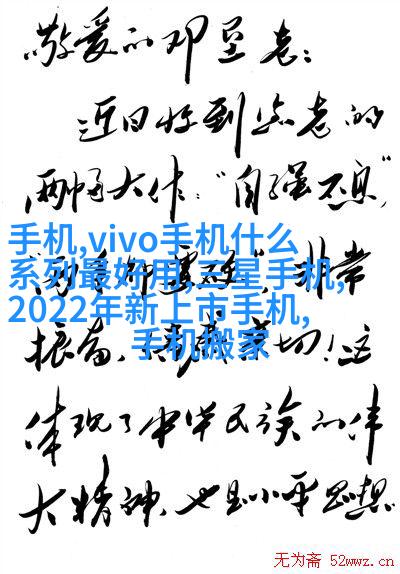 敬爱的邓星老：
近日收到您老的
两幅大作："自强不息"
手机,vivo手机什么
系列最好用,三星手机,
2022年新上市手机,
手机搬家
非常
振奋、切！这
体现了中华民族的伟
大精神，也是小平思想
无为斋 52wwz.cn